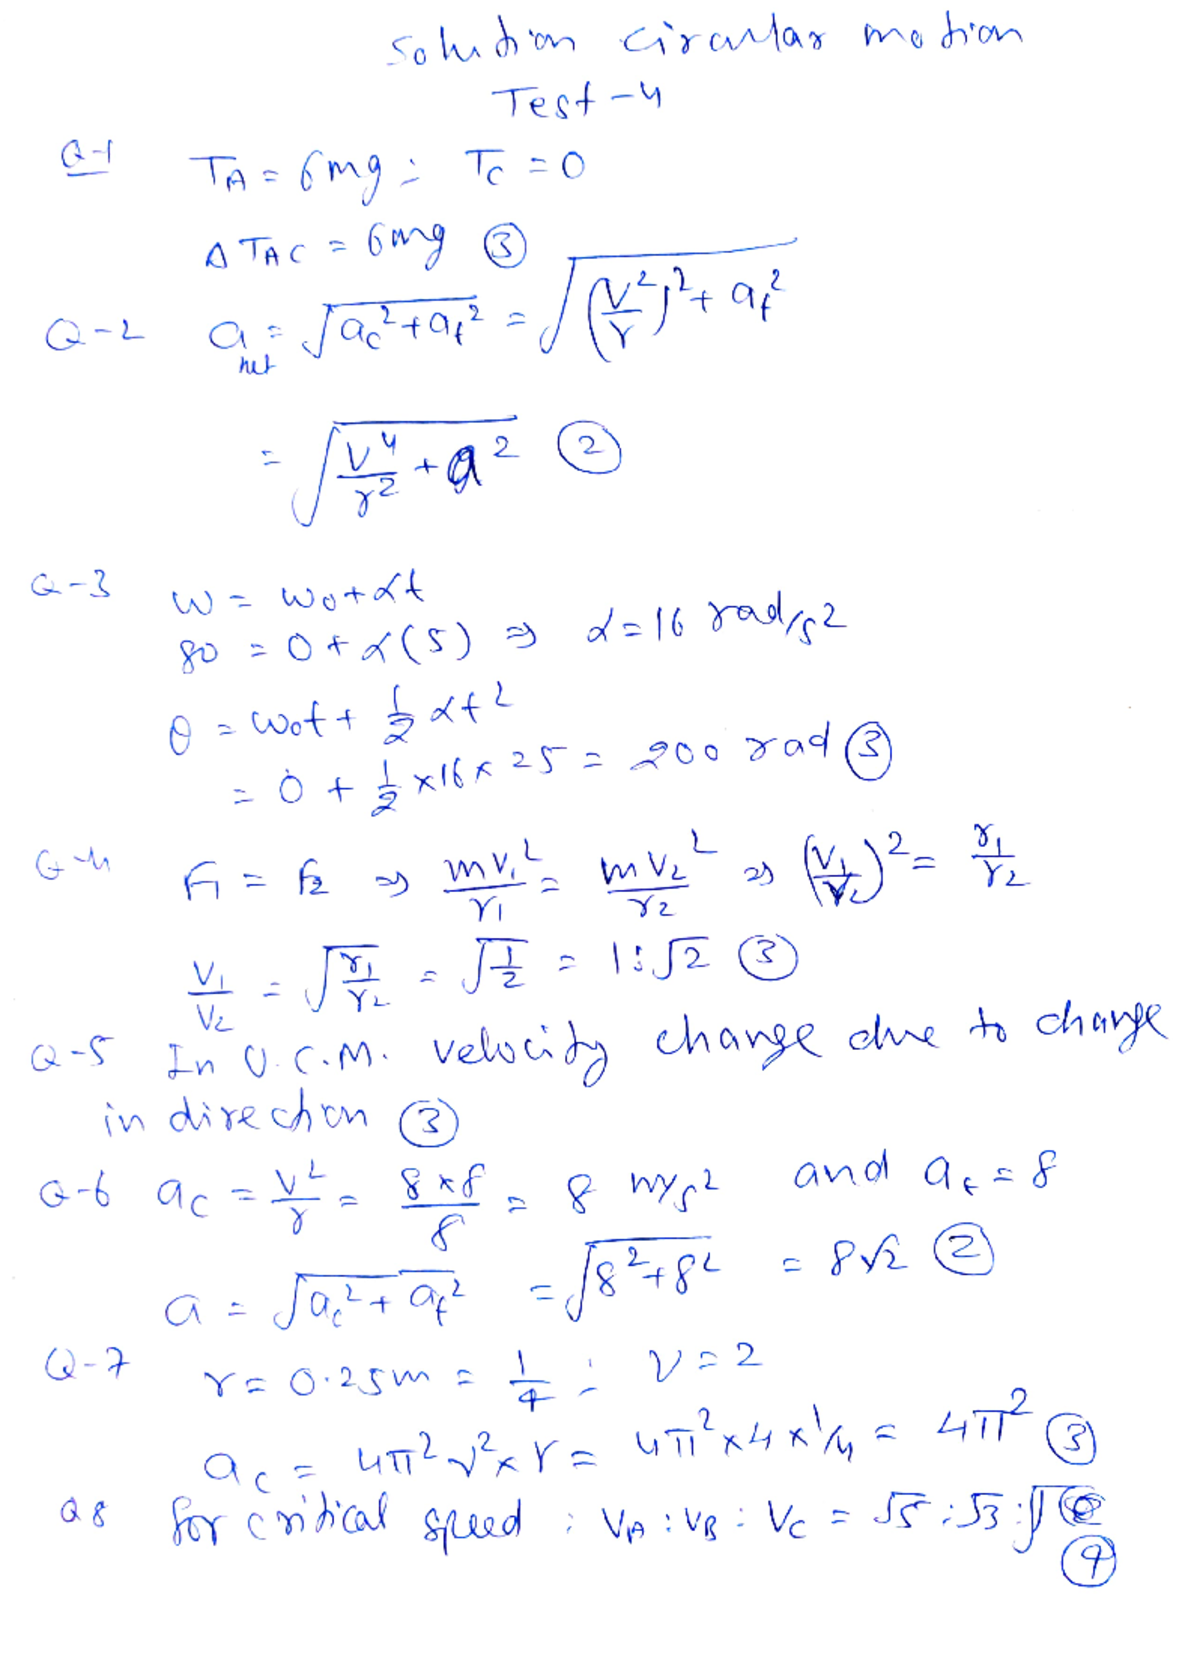 Solution circular motion
Test-4
Q-1 TA = 6mg ; TC = 0
Δ TAC = 6mg ③
Q-2 a net = √(ac² + at²) = √((v²/r)² + at²)
= √(v⁴/r² + a²) ②
Q-3 w = wo + αt
80 = 0 + α(5) ⇒ α = 16 rad/s²
θ = wot + 1/2 αt²
= 0 + 1/2 × 16 × 25 = 200 rad ③
Q-4 F1 = F2 ⇒ mv1²/r1 = mv2²/r2 ⇒ (v1/v2)² = r1/r2
V1/V2 = √(r1/r2) = √(1/2) = 1 : √2 ③
Q-5 In U.C.M. velocity change due to change
in direction ③
Q-6 ac = v²/r = 8×8/8 = 8 m/s² and at = 8
a = √(ac² + at²) = √(8² + 8²) = 8√2 ②
Q-7 r = 0.25m = 1/4 ; ν = 2
ac = 4π²ν² × r = 4π² × 4 × 1/4 = 4π² ③
Q8 for critical speed ; VA : VB : VC = √5 : √3 : √
④